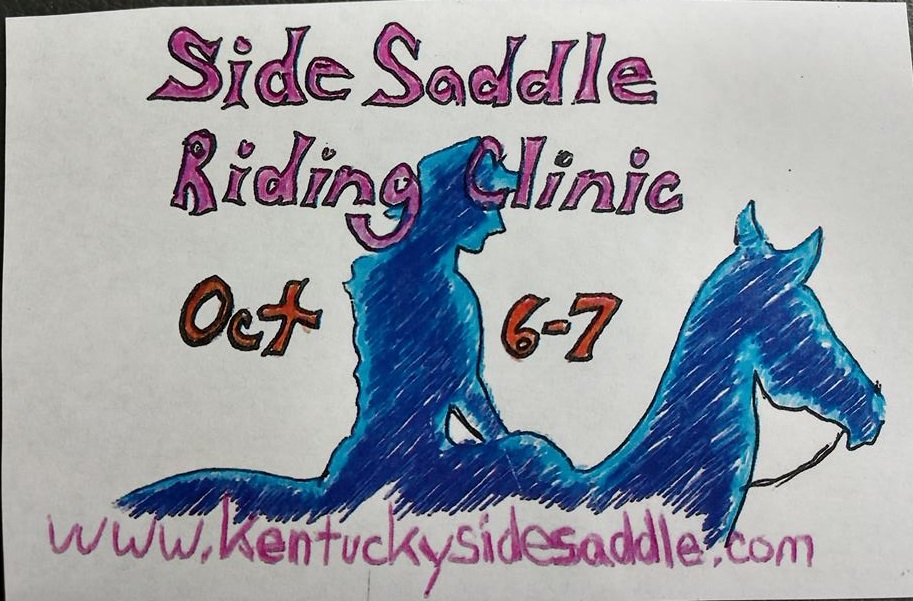 Side Saddle
Riding Clinic
Oct 6-7
www.Kentuckysidesaddle.com